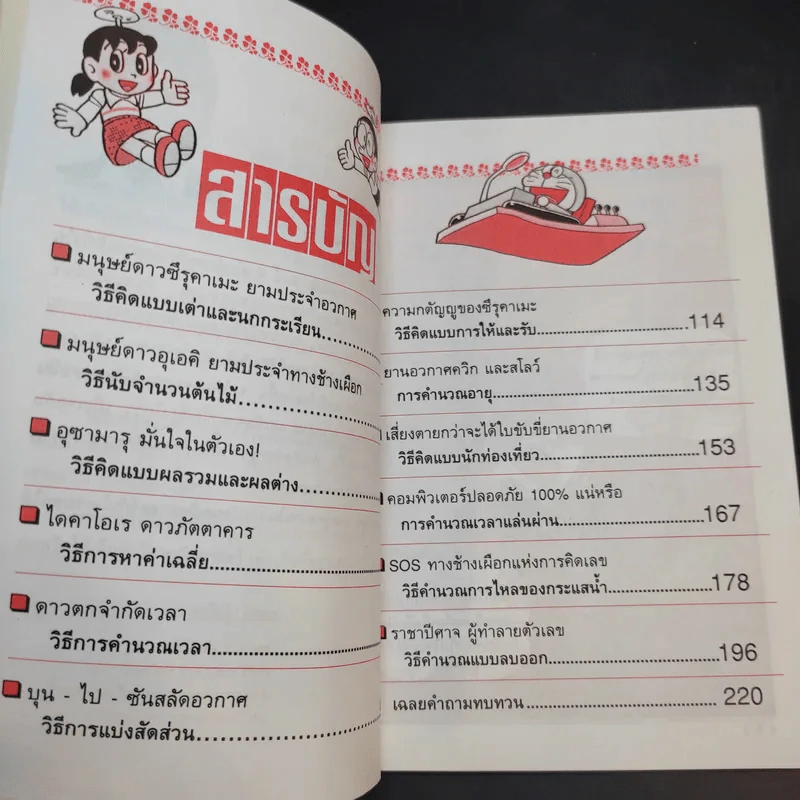 สารบัญ
มนุษย์ดาวซึรุคาเมะ ยามประจำอวกาศ
วิธีคิดแบบเต่าและนกกระเรียน
มนุษย์ดาวอุเอคิ ยามประจำทางช้างเผือก
วิธีนับจำนวนต้นไม้
อุซามารุ มั่นใจในตัวเอง!
วิธีคิดแบบผลรวมและผลต่าง
ไดคาโอเร ดาวภัตตาคาร
วิธีการหาค่าเฉลี่ย
ดาวตกจำกัดเวลา
วิธีการคำนวณเวลา
บุน - ไป - ซันสลัดอวกาศ
วิธีการแบ่งสัดส่วน
ความกตัญญูของซึรุคาเมะ
วิธีคิดแบบการให้และรับ 114
ยานอวกาศควิก และสโลว์
การคำนวณอายุ 135
เสี่ยงตายกว่าจะได้ใบขับขี่ยานอวกาศ
วิธีคิดแบบนักท่องเที่ยว 153
คอมพิวเตอร์ปลอดภัย 100% แน่หรือ
การคำนวณเวลาแล่นผ่าน 167
SOS ทางช้างเผือกแห่งการคิดเลข
วิธีคำนวณการไหลของกระแสน้ำ 178
ราชาปีศาจ ผู้ทำลายตัวเลข
วิธีคำนวณแบบลบออก 196
เฉลยคำถามทบทวน 220